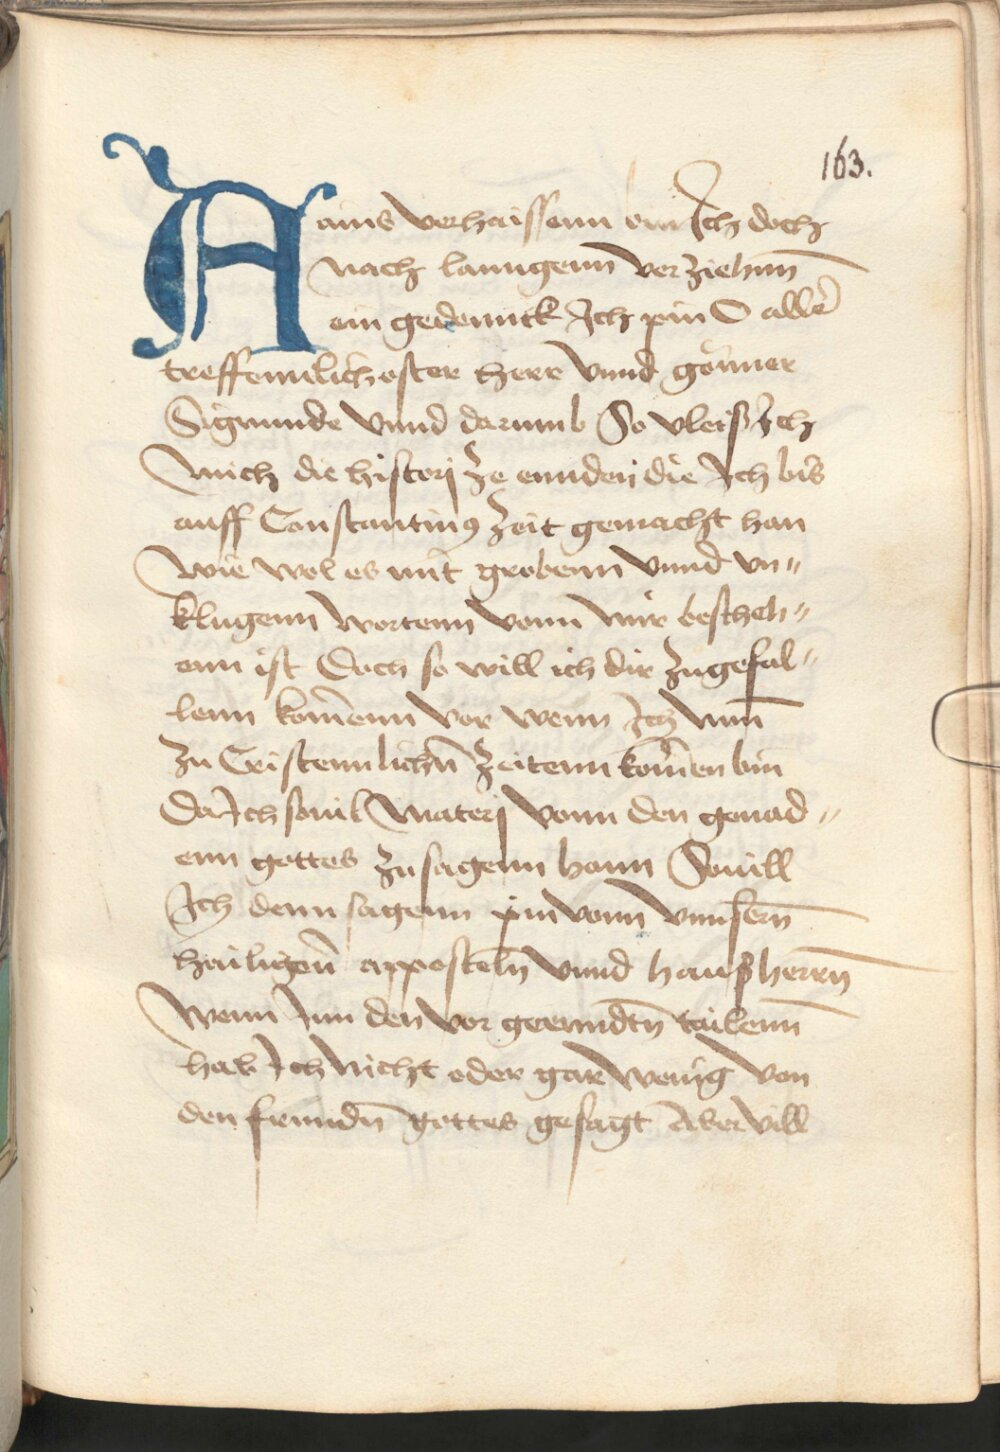 163.
Aains verhaissenn bin Ich doch
nach lanngenn verziehnn̄
ein gedennck Ich pin O allẽ
treffennlichoster herr vnnd gönner
Sigmunde vnnd darumb So vleiß Ich
mich die histori ze ennden die Ich bis
auff Constantinꝰ zeit gemacht han
wie wol es mit grobenn vnnd vn〃
klugenn wortenn vonn mir bescheh〃
enn ist Doch so will ich dir zugefal〃
lenn kom̄enn vor wenn Ich nun̄
zu Cristennlichñ zeitenn kom̄en bin
Da Ich souil materj vonn den genad〃
enn gottes zu sagenn hann Souill
Ich denn sagenn pin vonn vnnsern̄
heiligenn̄ apposteln̄ vnnd haußherrn̄
wenn Inn den vor geenndtñ tailenn̄
hab Ich nicht oder gar wenig von
den freundñ gottes gesagt Aber vill